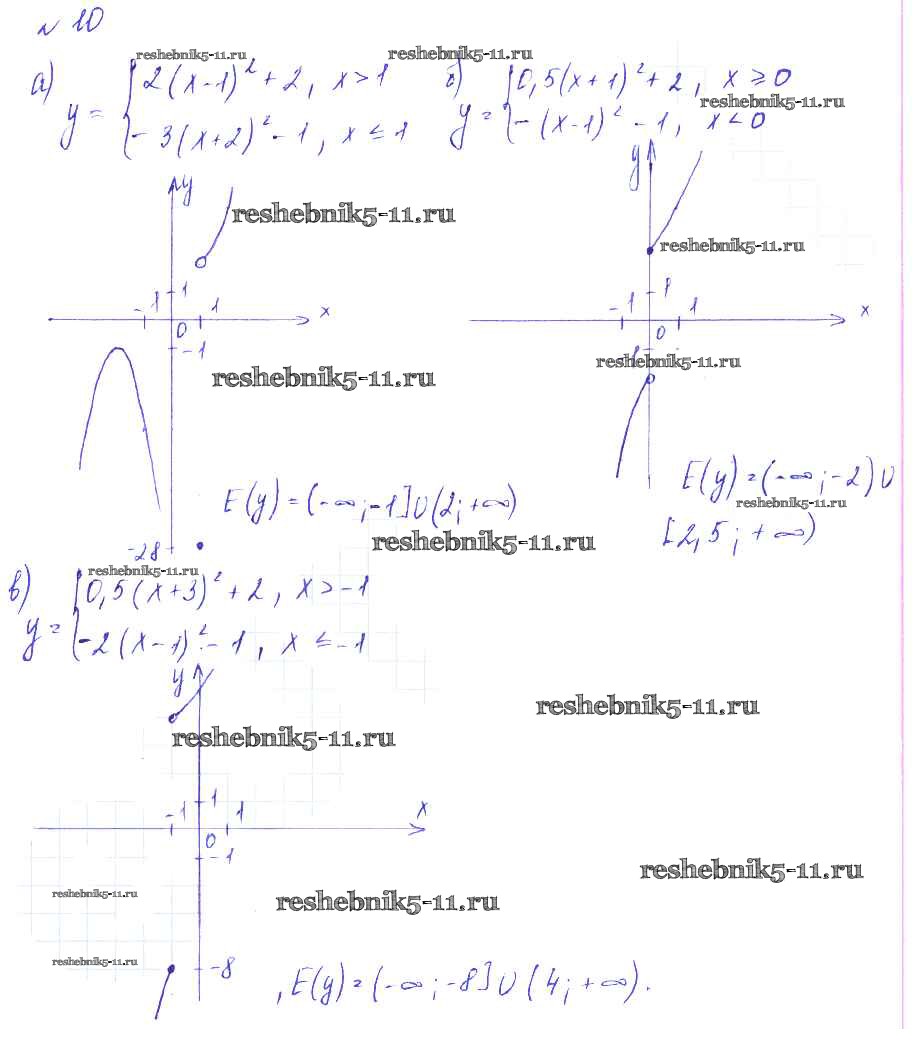 № 10
reshebnik5-11.ru
reshebnik5-11.ru
а) y = { 2(x-1)² + 2, x > 1
- 3(x+2)² - 1, x ≤ 1
б) y = { 0,5(x+1)² + 2, x ≥ 0
reshebnik5-11.ru
- (x-1)² - 1, x < 0
y
reshebnik5-11.ru
1
-1 0 1 x
-1
reshebnik5-11.ru
-28
E(y) = (-∞; -1] ∪ (2; +∞)
reshebnik5-11.ru
y
reshebnik5-11.ru
1
-1 0 1 x
reshebnik5-11.ru
E(y) = (-∞; -2) ∪
reshebnik5-11.ru
[2,5; +∞)
reshebnik5-11.ru
в) y = { 0,5(x+3)² + 2, x > -1
-2(x-1)² - 1, x ≤ -1
y
reshebnik5-11.ru
reshebnik5-11.ru
1
-1 0 1 x
-1
reshebnik5-11.ru
reshebnik5-11.ru
reshebnik5-11.ru
reshebnik5-11.ru
-8
, E(y) = (-∞; -8] ∪ (4; +∞).